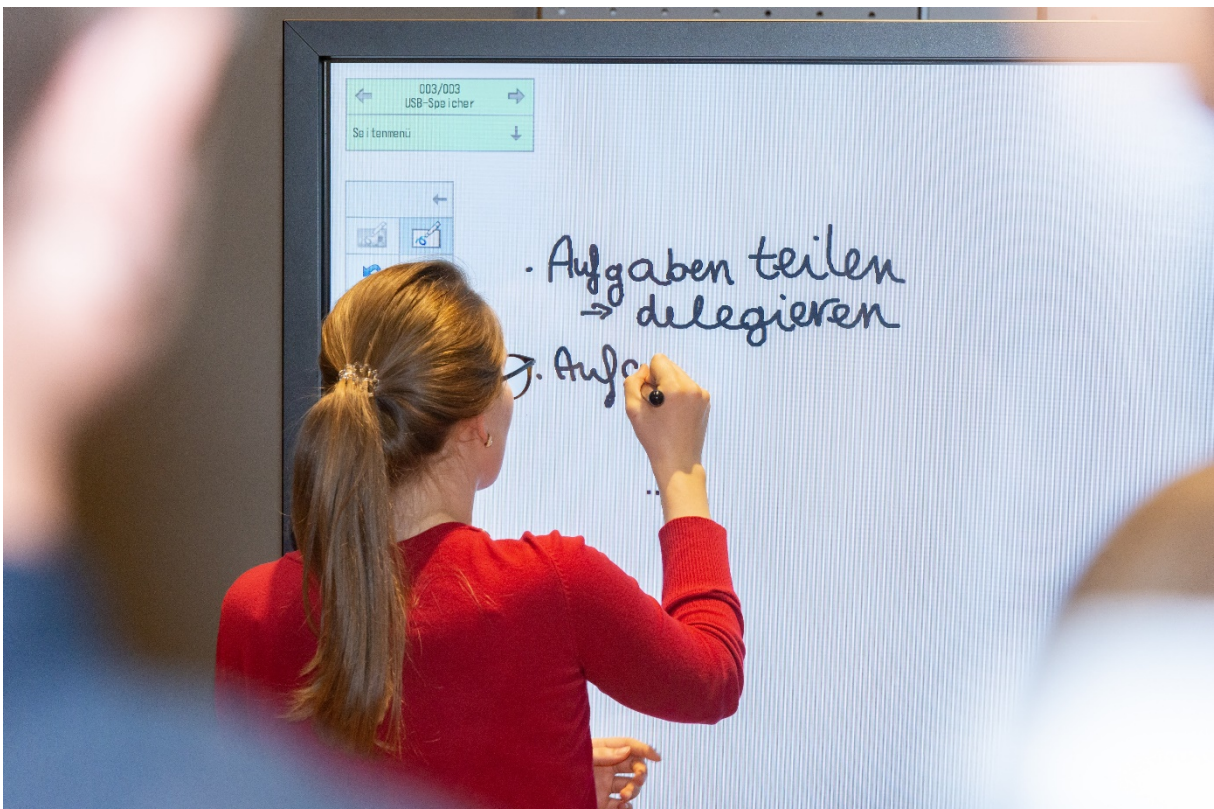 003/003
USB-Speicher
Seitenmenü
· Aufgaben teilen
→ delegieren
· Auf